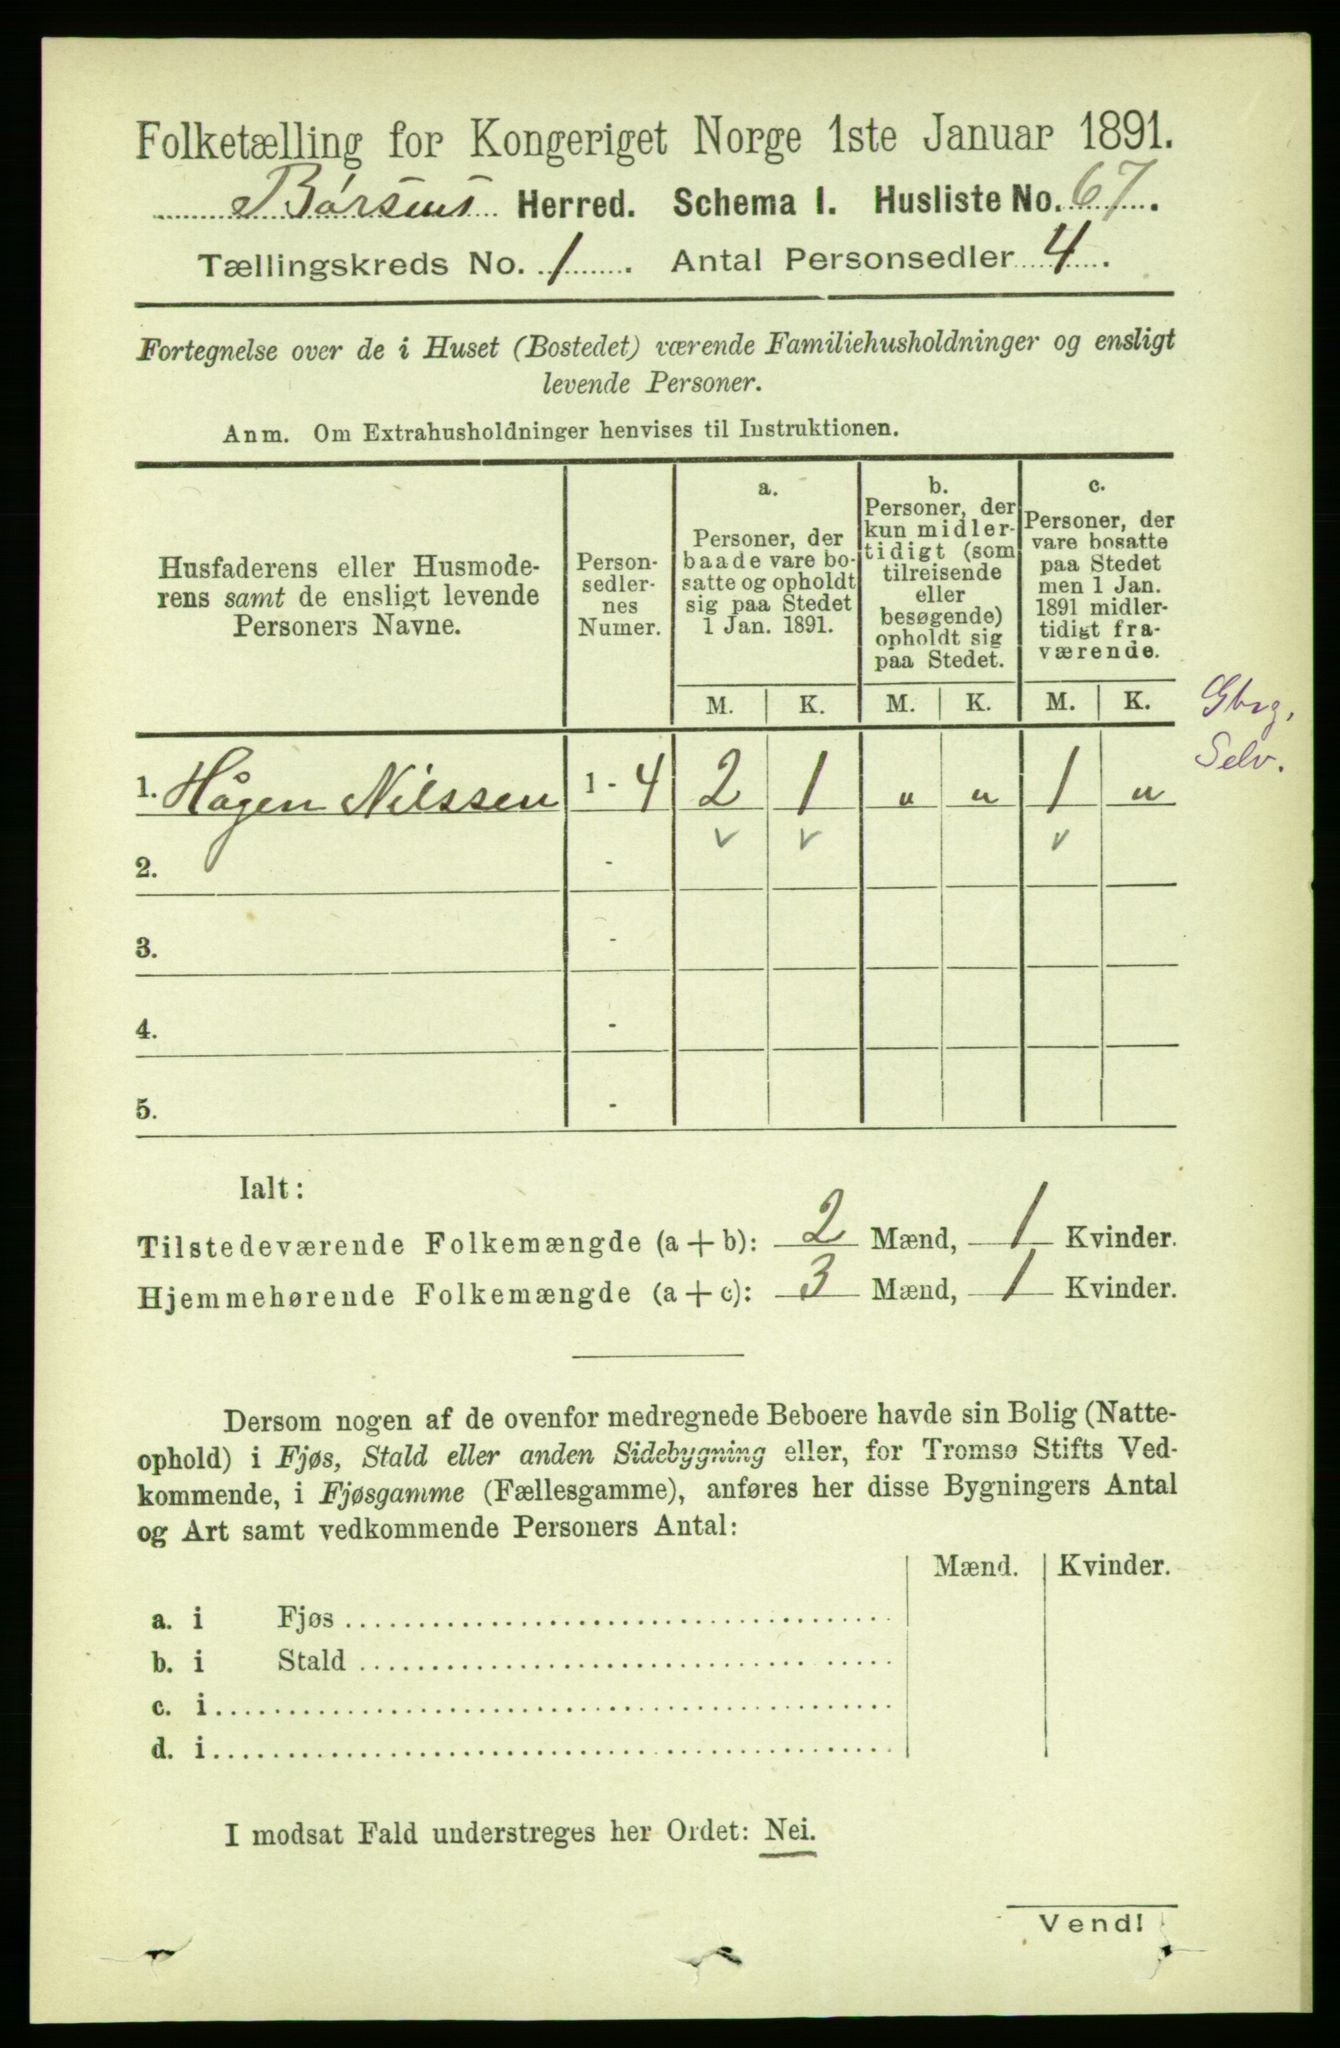 Folketælling for Kongeriget Norge 1ste Januar 1891.
Børsens Herred. Schema I. Husliste No. 67.
Tællingskreds No. 1. Antal Personsedler 4.
Fortegnelse over de i Huset (Bostedet) værende Familiehusholdninger og ensligt
levende Personer.
Anm. Om Extrahusholdninger henvises til Instruktionen.
Husfaderens eller Husmode-
rens samt de ensligt levende
Personers Navne.
Person-
sedler-
nes
Numer.
a.
Personer, der
baade vare bo-
satte og opholdt
sig paa Stedet
1 Jan. 1891.
b.
Personer, der
kun midler-
tidigt (som
tilreisende
eller
besøgende)
opholdt sig
paa Stedet.
c.
Personer, der
vare bosatte
paa Stedet
men 1 Jan.
1891 midler-
tidigt fra-
værende.
M. K. M. K. M. K.
Gbrg.
Selv.
1. Hågen Nilssen 1 - 4 2 1 " " 1 "
2. -
3. -
4. -
5. -
Ialt:
Tilstedeværende Folkemængde (a + b): 2 Mænd, 1 Kvinder.
Hjemmehørende Folkemængde (a + c): 3 Mænd, 1 Kvinder.
Dersom nogen af de ovenfor medregnede Beboere havde sin Bolig (Natte-
ophold) i Fjøs, Stald eller anden Sidebygning eller, for Tromsø Stifts Ved-
kommende, i Fjøsgamme (Fællesgamme), anføres her disse Bygningers Antal
og Art samt vedkommende Personers Antal:
Mænd. Kvinder.
a. i Fjøs
b. i Stald
c. i
d. i
I modsat Fald understreges her Ordet: Nei.
Vend!